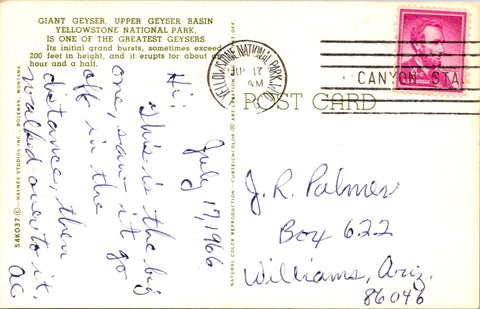 GIANT GEYSER, UPPER GEYSER BASIN
YELLOWSTONE NATIONAL PARK,
IS ONE OF THE GREATEST GEYSERS
Its initial grand bursts, sometimes exceed
200 feet in height, and it erupts for about an
hour and a half.
YELLOWSTONE NATIONAL PARK, WYO.
17
AM
CANYON STA.
POST CARD
54K037 © — HAYNES STUDIOS INC. - BOZEMAN, MONTANA
NATURAL COLOR REPRODUCTION - CURTEICHCOLOR ® ART CREATION
July 17, 1966
Hi!
This is the big
one, saw it go
off in the
distance, then
walked over to it.
AC
J. R. Palmer
Box 622
Williams, Ariz.
86046